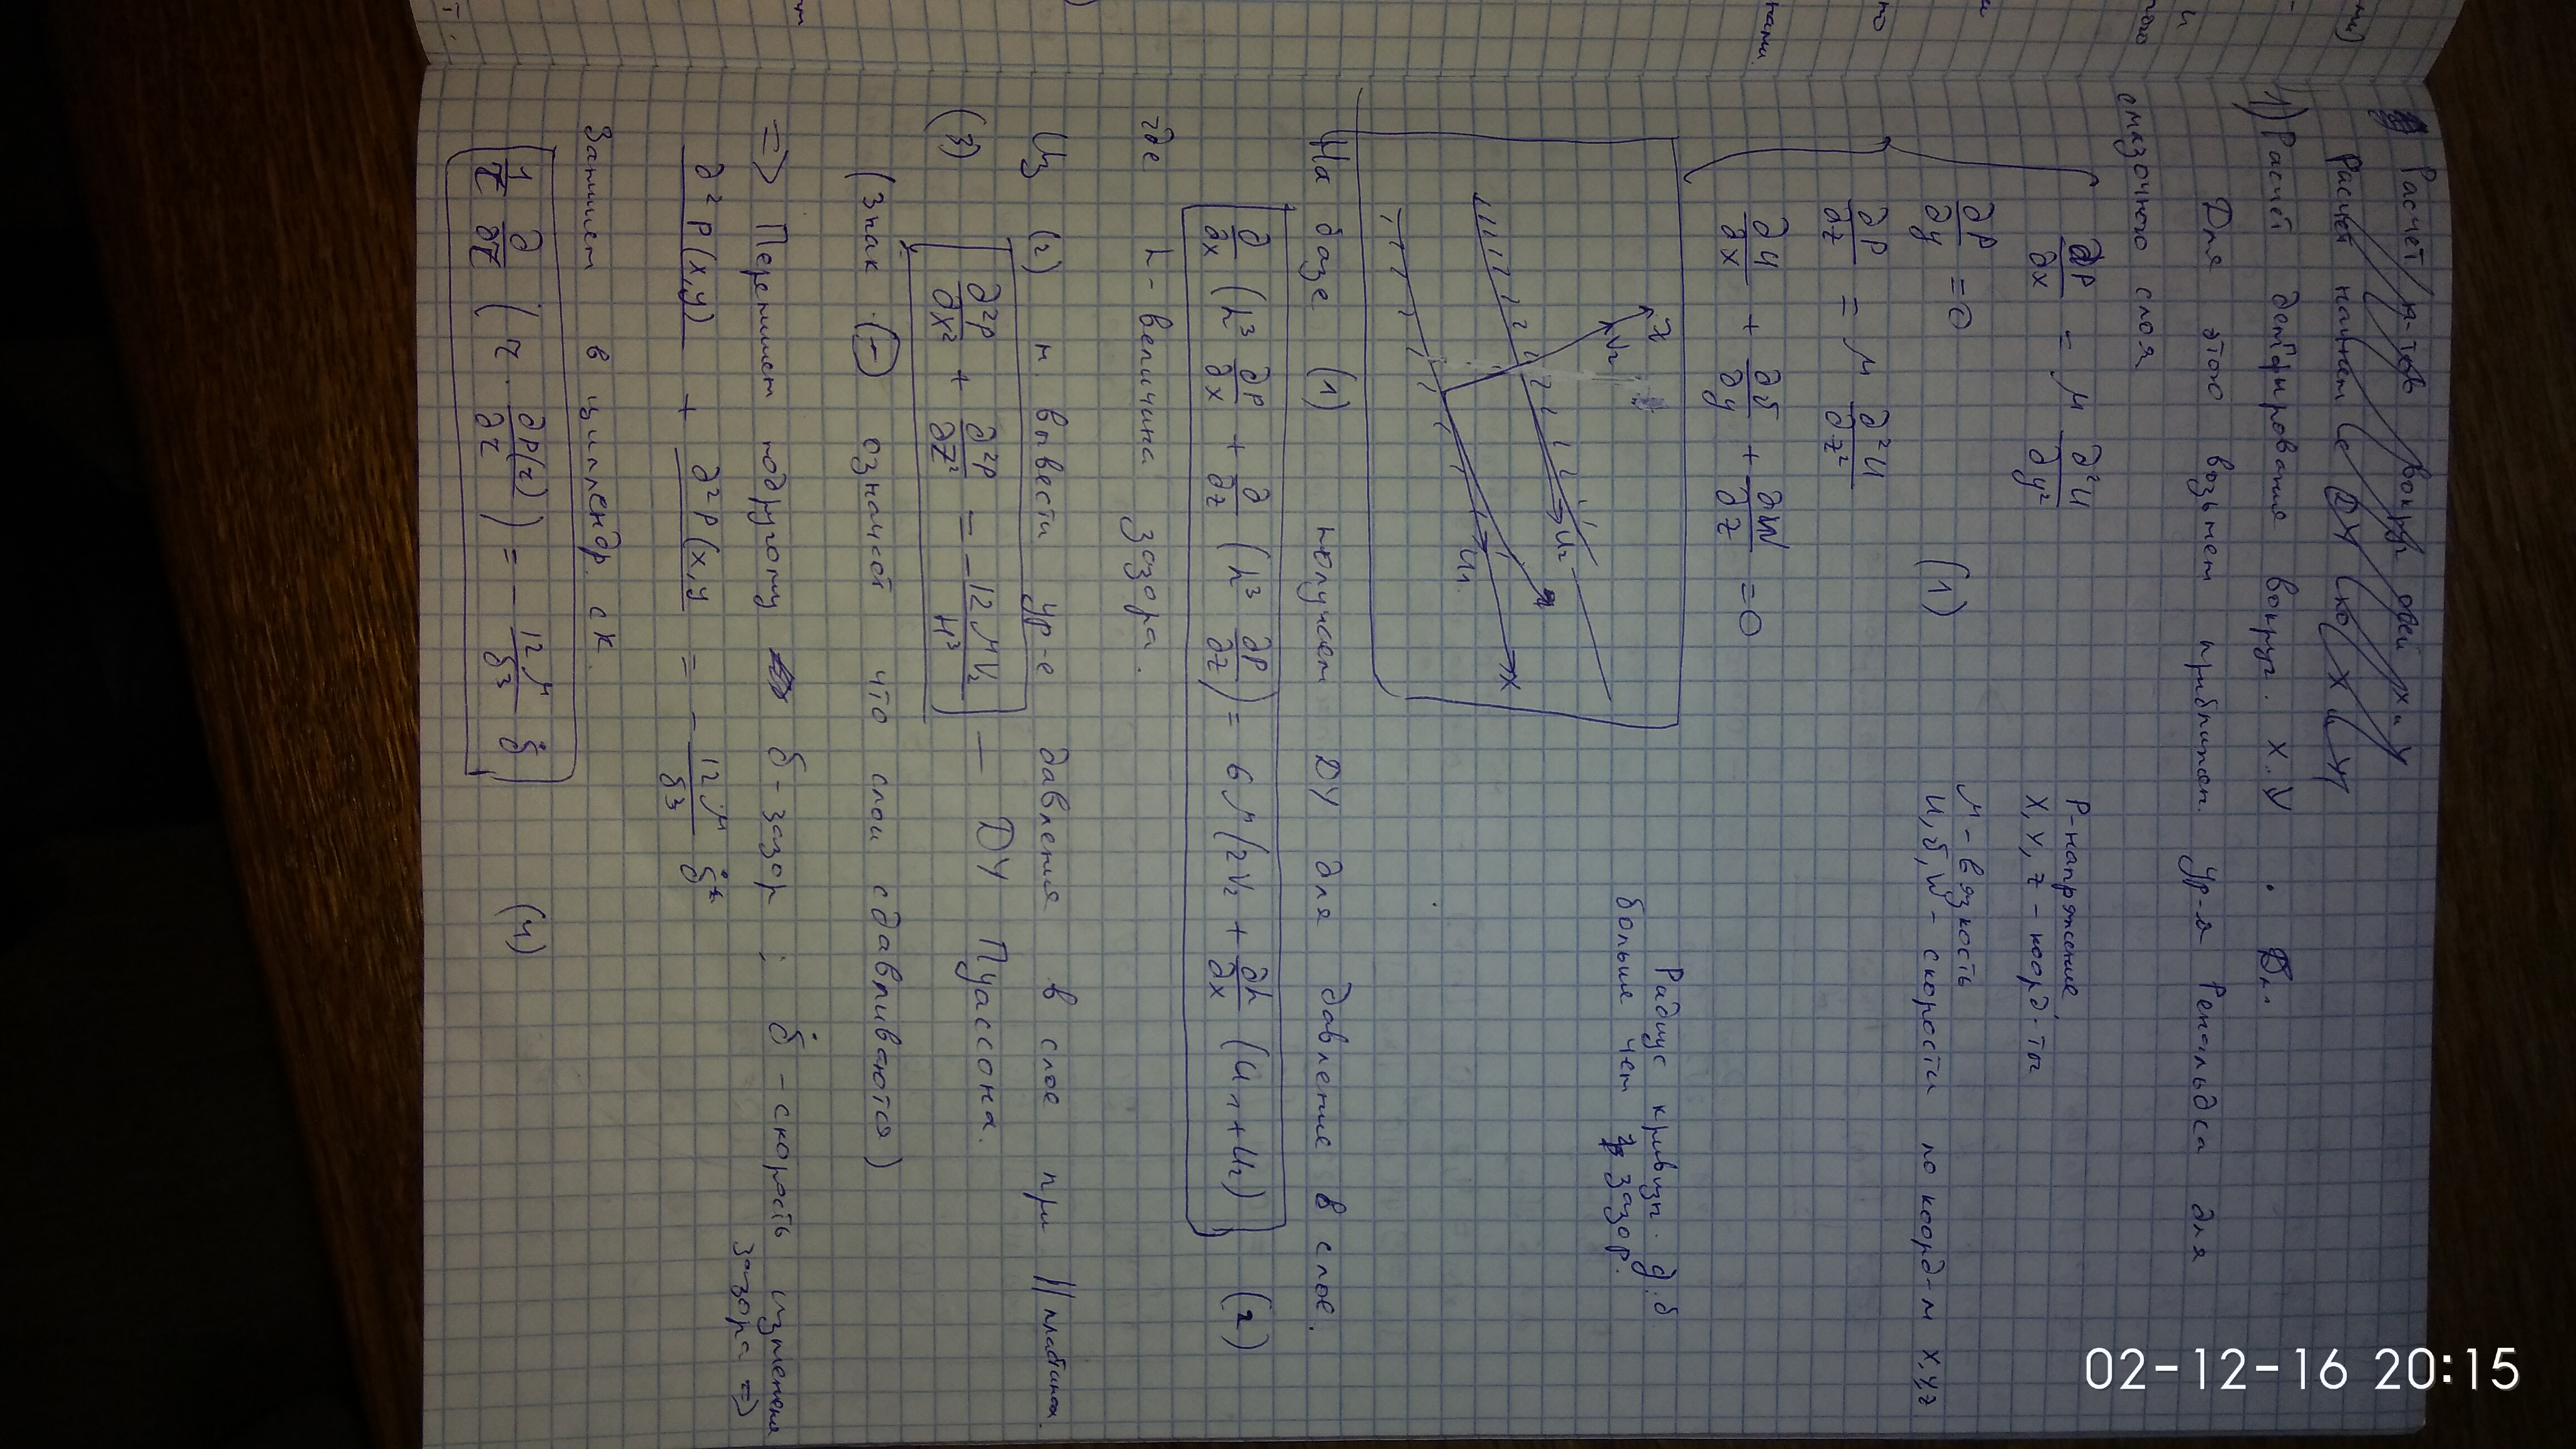 Расчёт к-тов вокруг осей х и у
Расчёт начнем с ДУ (ко) х и у
1) Расчёт демпфирования вокруг. X.. У
Для этого возьмем приближ. ур-я Рейнольдса для
смазочного слоя
∂P/∂x = μ ∂²u/∂y²
P - напряжение,
X, Y, Z - коорд-ты
∂P/∂y = 0
(1)
μ - вязкость
u, v, w - скорости по коорд-м x,y,z
∂P/∂z = μ ∂²u/∂z²
∂u/∂x + ∂v/∂y + ∂w/∂z = 0
Радиус кривизн. д.б
больше чем зазор.
V₂
U₂
U₁
X
На базе (1) получаем ДУ для давление в слое.
∂/∂x (h³ ∂P/∂x + ∂/∂z (h³ ∂P/∂z) = 6μ(2V₂ + ∂h/∂x (U₁+U₂) (2)
где h - величина зазора.
Из (2) м. вывести ур-е давления в слое при || пластинах.
(3) ∂²P/∂x² + ∂²P/∂z² = - 12μV₂/H³ — ДУ Пуассона.
(Знак (-) означает что слои сдавливаются)
=> Перепишем подругому δ - зазор ; δ̇ - скорость изменения
зазора =>
∂²P(x,y) + ∂²P(x,y = - 12μ/δ³ δ̇
Запишем в цилиндр. ск.
1/r ∂/∂r (r · ∂P(r)/∂r) = - 12μ/δ³ δ̇ (4)
02-12-16 20:15